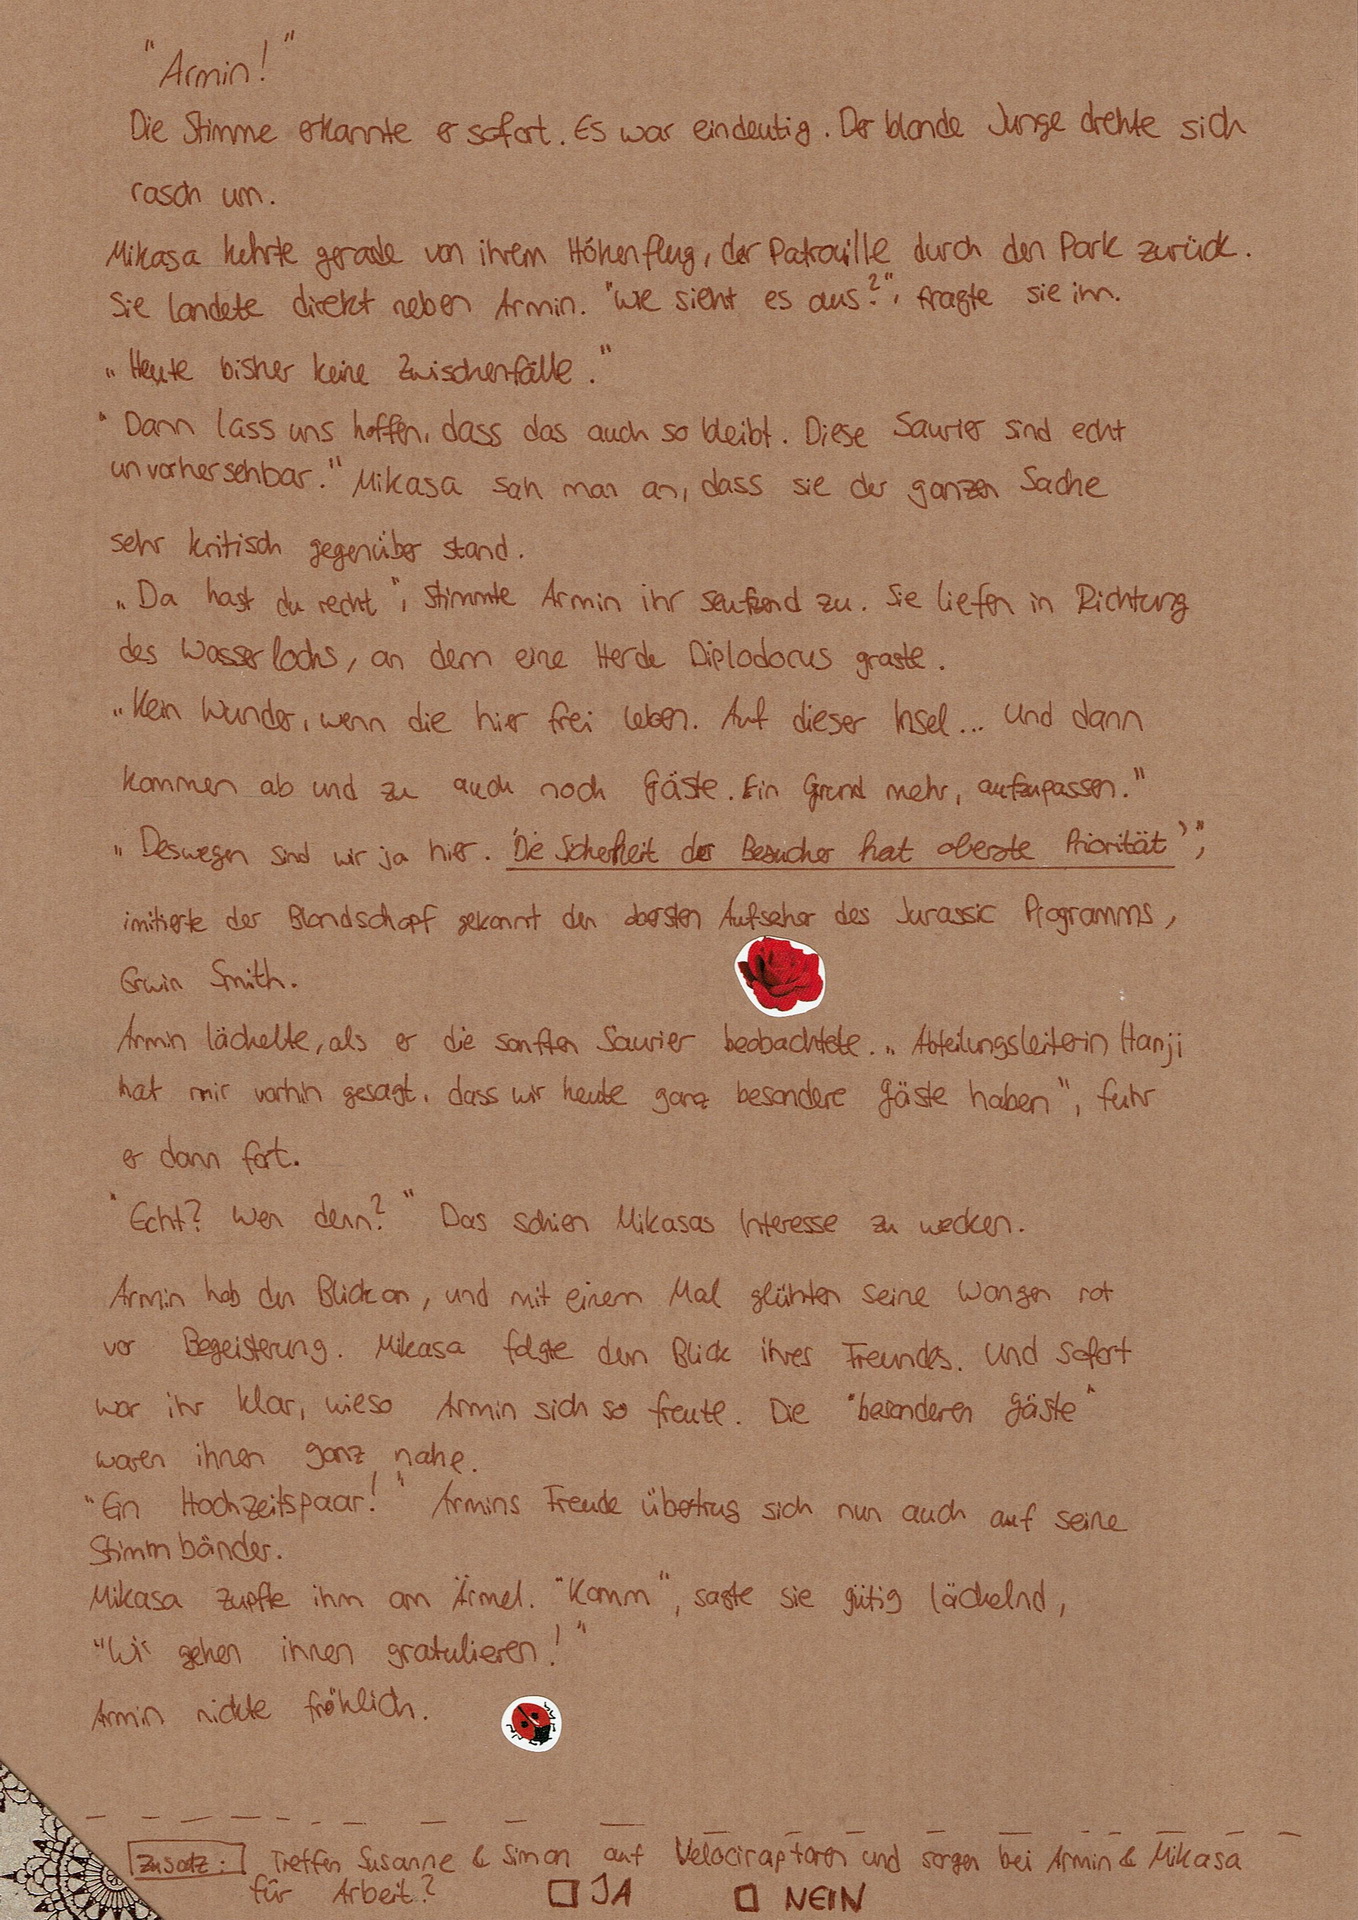 "Armin!"
Die Stimme erkannte er sofort. Es war eindeutig. Der blonde Junge drehte sich
rasch um.
Mikasa kehrte gerade von ihrem Höhenflug, der Patrouille durch den Park zurück.
Sie landete direkt neben Armin. "Wie sieht es aus?", fragte sie ihn.
„Heute bisher keine Zwischenfälle."
"Dann lass uns hoffen, dass das auch so bleibt. Diese Saurier sind echt
unvorhersehbar." Mikasa sah man an, dass sie der ganzen Sache
sehr kritisch gegenüber stand.
„Da hast du recht", stimmte Armin ihr seufzend zu. Sie liefen in Richtung
des Wasserlochs, an dem eine Herde Diplodocus graste.
„Kein Wunder, wenn die hier frei leben. Auf dieser Insel... Und dann
kommen ab und zu auch noch Gäste. Ein Grund mehr, aufzupassen."
„Deswegen sind wir ja hier. 'Die Sicherheit der Besucher hat oberste Priorität'",
imitierte der Blondschopf gekonnt den obersten Aufseher des Jurassic Programms,
Erwin Smith.
Armin lächelte, als er die sanften Saurier beobachtete. „Abteilungsleiterin Hanji
hat mir vorhin gesagt, dass wir heute ganz besondere Gäste haben", fuhr
er dann fort.
"Echt? Wen denn?" Das schien Mikasas Interesse zu wecken.
Armin hob den Blick an, und mit einem Mal glühten seine Wangen rot
vor Begeisterung. Mikasa folgte dem Blick ihres Freundes. Und sofort
war ihr klar, wieso Armin sich so freute. Die "besonderen Gäste"
waren ihnen ganz nahe.
"Ein Hochzeitspaar!" Armins Freude übertrug sich nun auch auf seine
Stimmbänder.
Mikasa zupfte ihm am Ärmel. "Komm", sagte sie gütig lächelnd,
"Wir gehen ihnen gratulieren!"
Armin nickte fröhlich.
Zusatz: Treffen Susanne & Simon auf Velociraptoren und sorgen bei Armin & Mikasa
für Arbeit? JA NEIN